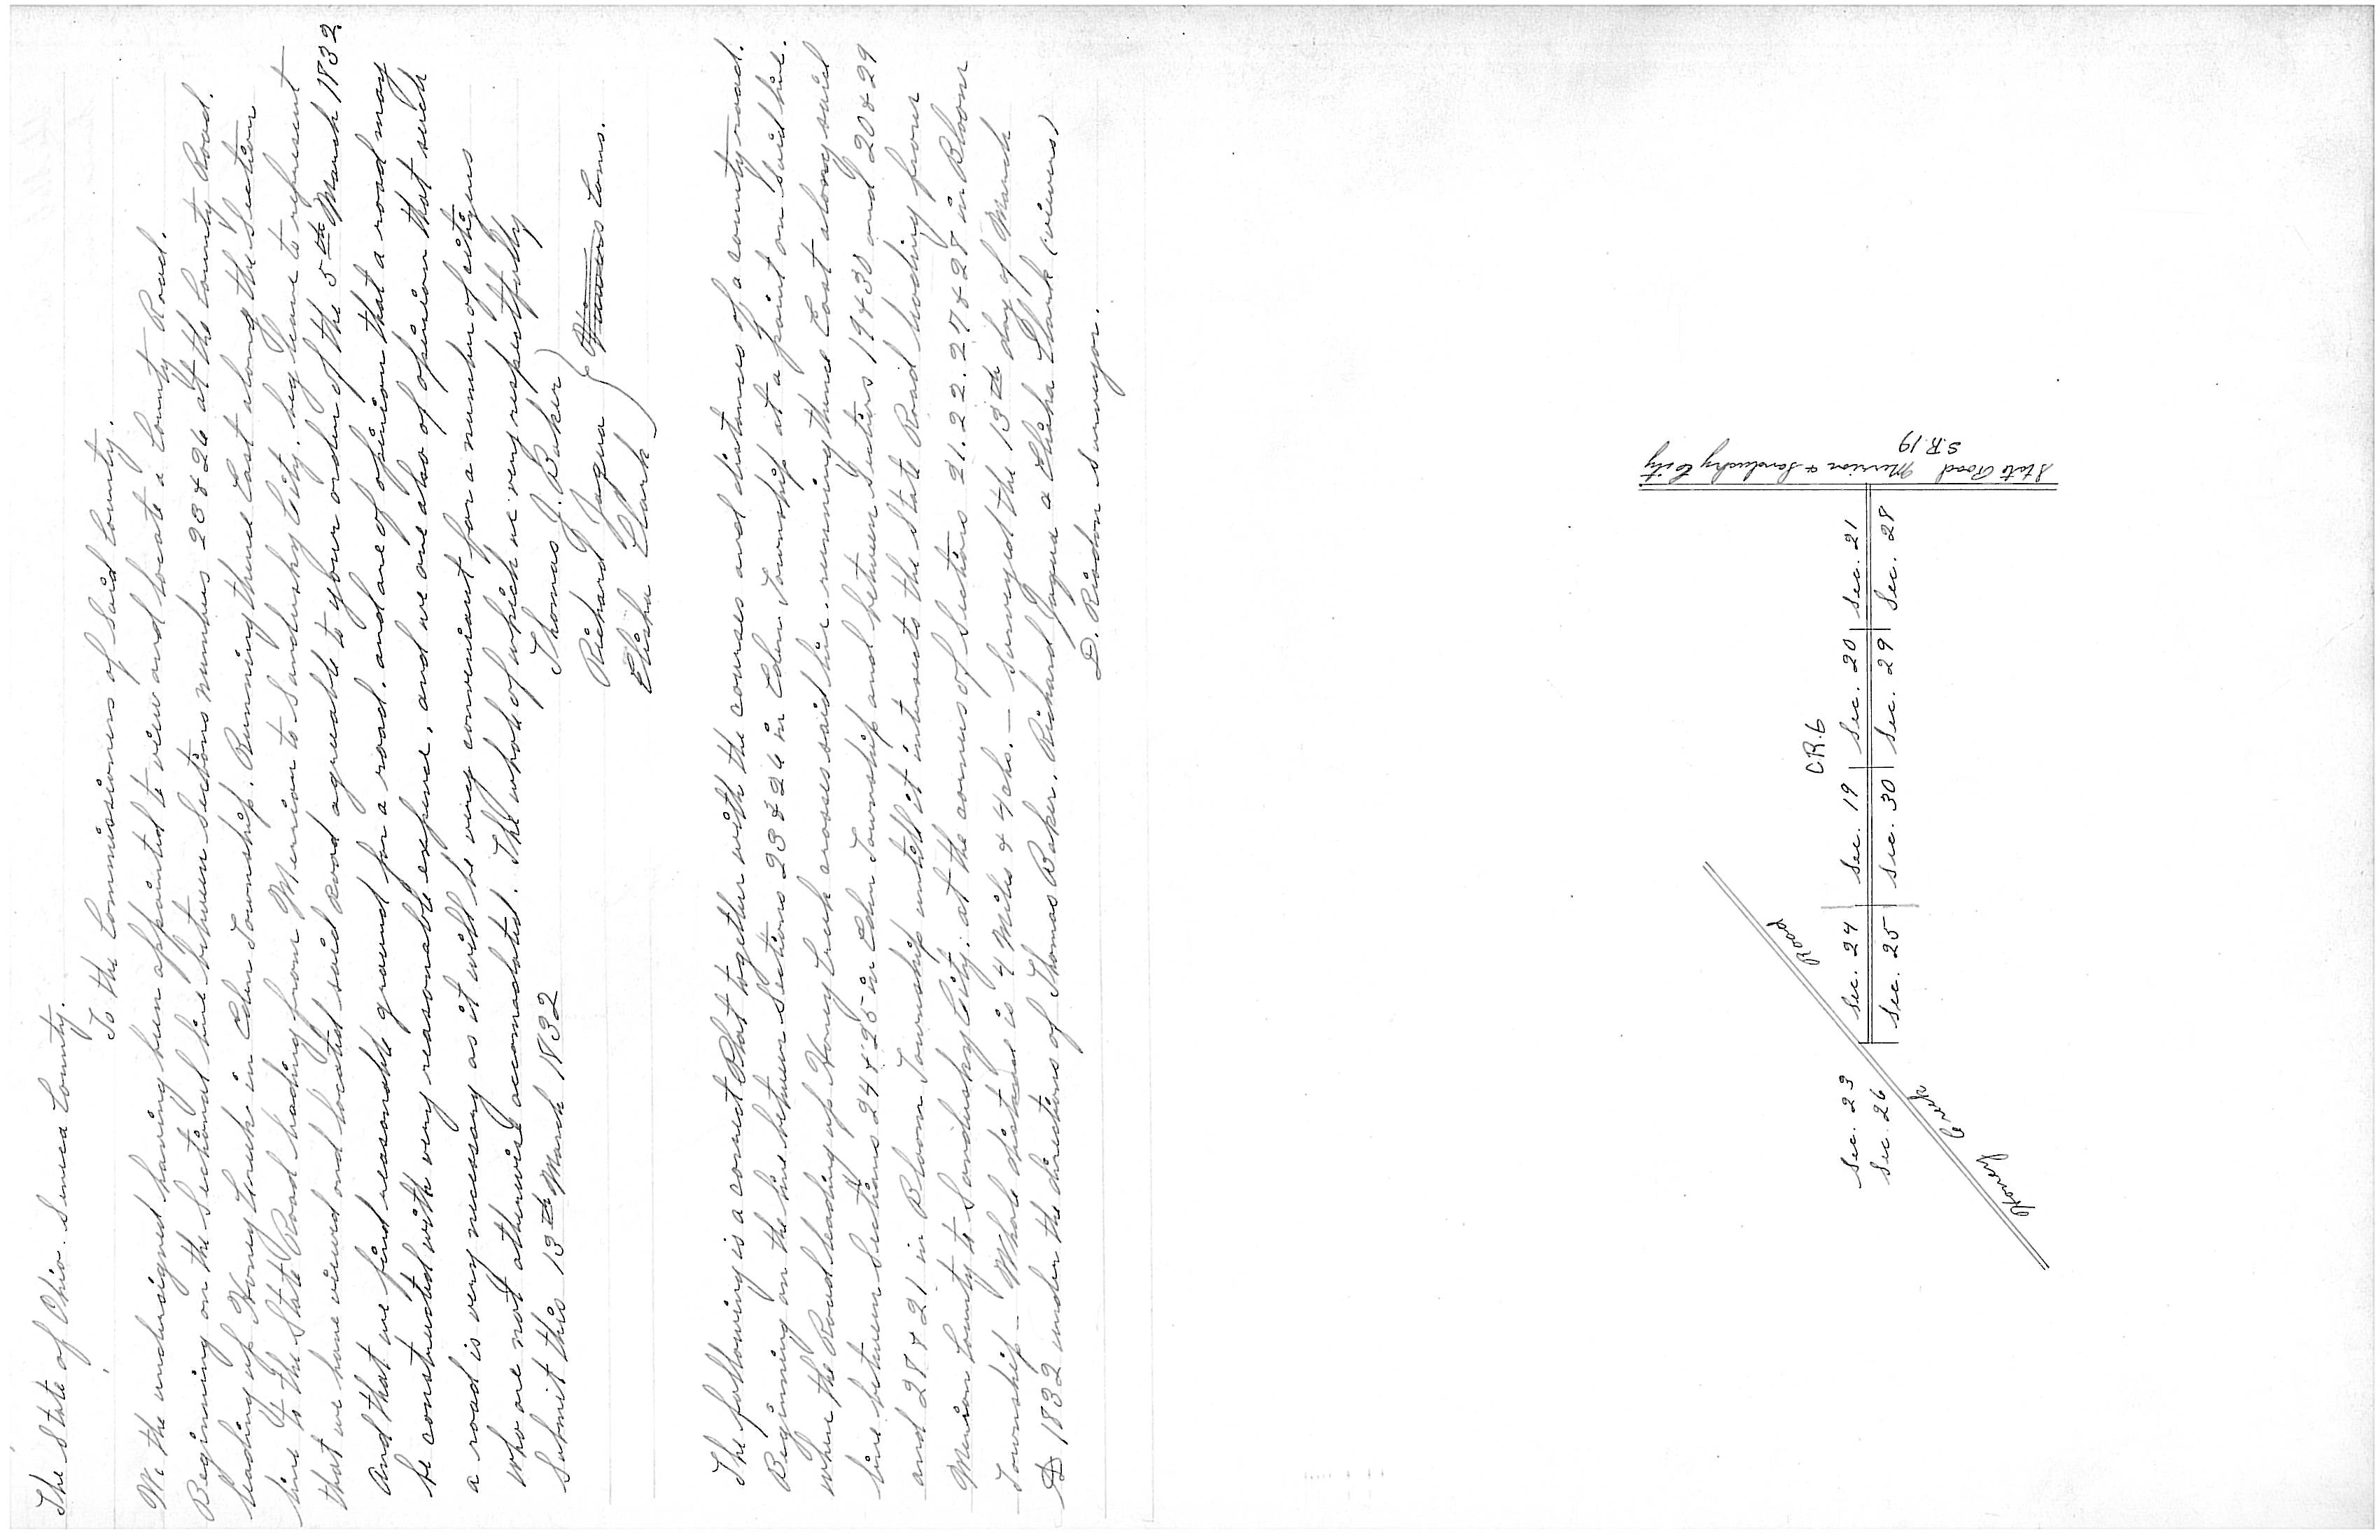 The State of Ohio. Seneca County.
To the Commissioners of Said County.
We the undersigned having been appointed to view and locate a County Road.
Beginning on the Sectional line between Sections numbers 23 & 26 at the County Road.
leading up Honey Creek in Eden Township. Running thence East along the Section
line to the State Road leading from Merrion to Sandusky City. beg leave to represent
that we have viewed and located said road agreeable to your order of the 5th March 1832
And that we find reasonable ground for a road. and are of opinion that a road may
be constructed with very reasonable expense. and we are also of opinion that such
a road is very necessary as it will be very convenient for a number of citizens
who are not otherwise accomodated. The whole of which we very respectfully
Submit this 13th March 1832
Thomas J. Baker
Richard Jaqua
Elisha Clark
Viewers Coms.
The following is a correct Plat together with the courses and distances of a county road.
Beginning on the line between Sections 23 & 26 in Eden Township at a point on Said line.
where the Road leading up Honey Creek crosses said line. running thence East along said
line between Sections 24 & 25 in Eden Township and between Sections 19 & 30 and 20 & 29
and 28 & 21 in Bloom Township untill it intersects the State Road leading from
Merion County to Sandusky City. at the corners of Sections 21. 22. 27 & 28 in Bloom
Township - Whole distance is 4 Miles & 4 chs. - Surveyed the 13th day of March
AD 1832 under the directions of Thomas Baker, Richard Jaqua & Elisha Clark (viewers)
D. Risdon Surveyor.
State Road Merrion & Sandusky City
S.R. 19
C.R. 6
Sec. 23
Sec. 24
Sec. 19
Sec. 20
Sec. 21
Sec. 26
Sec. 25
Sec. 30
Sec. 29
Sec. 28
Honey Creek Road